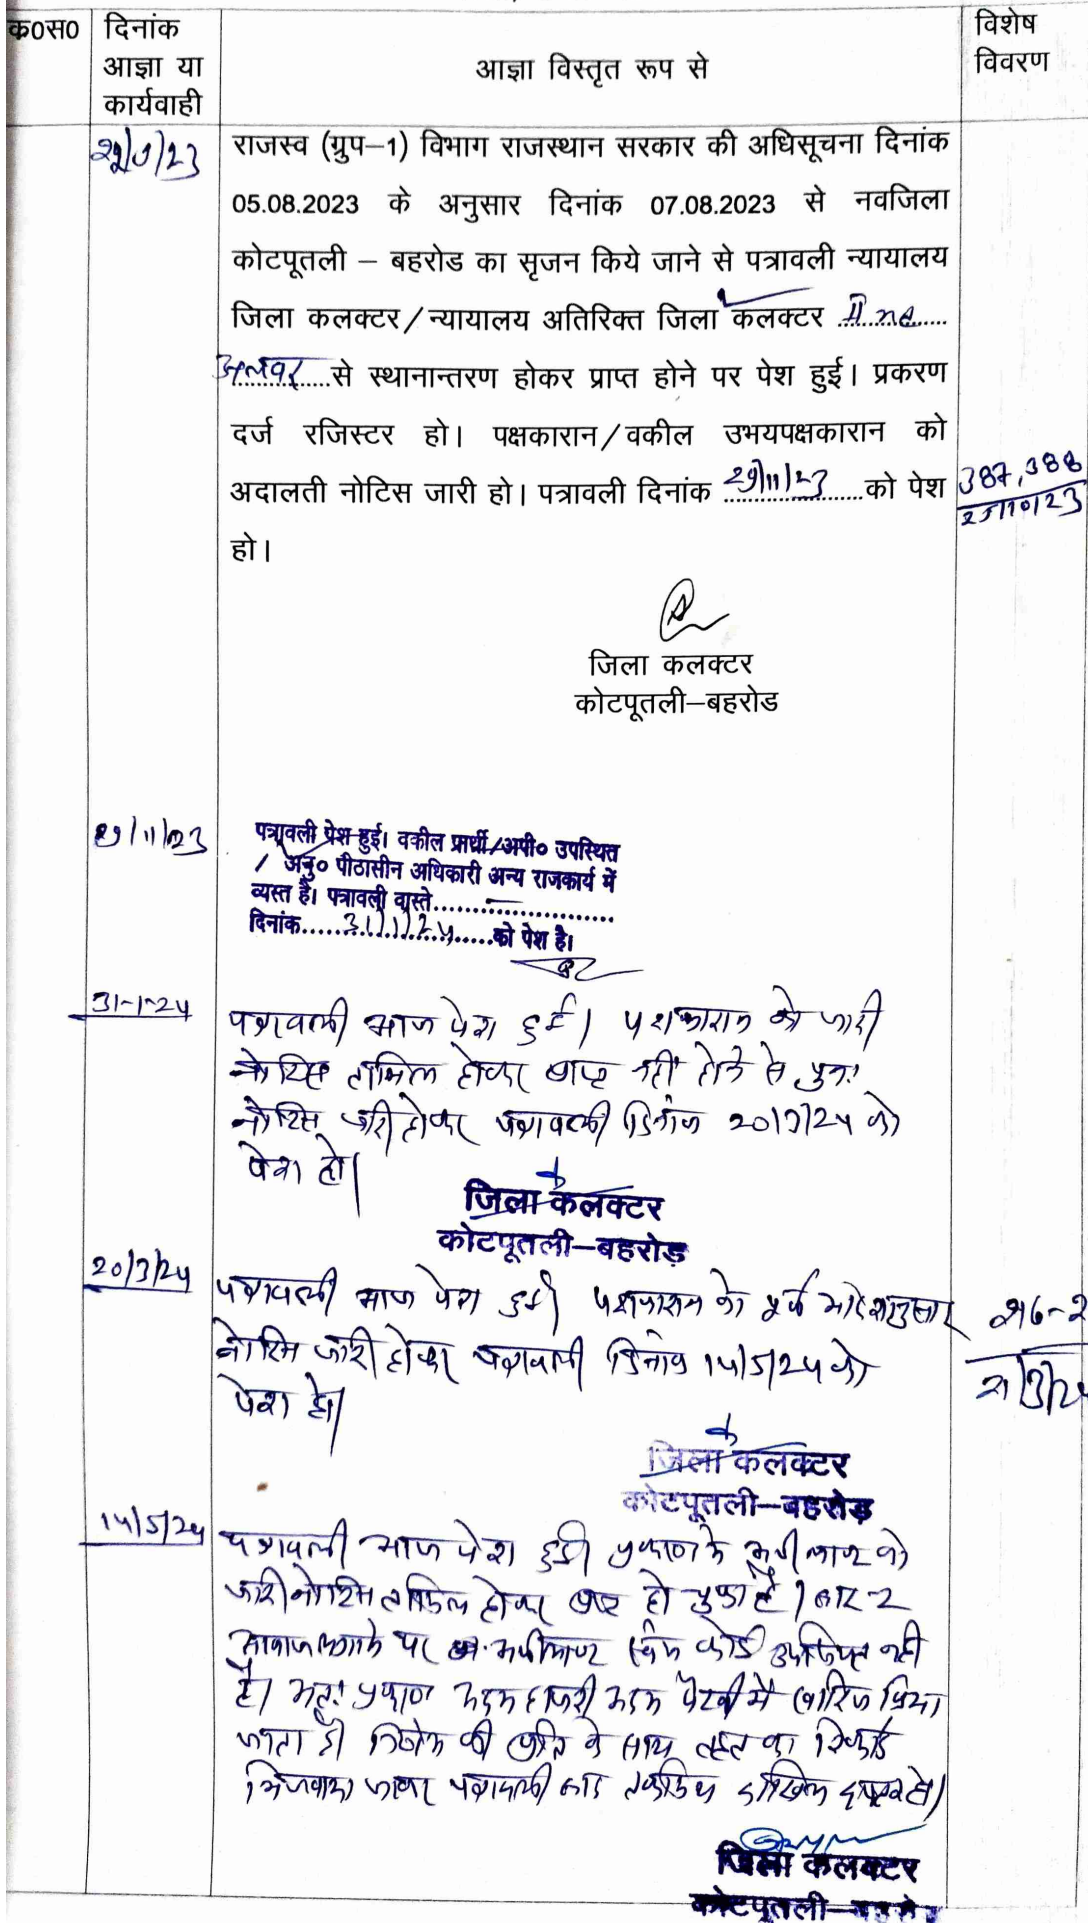 क0स0
दिनांक
आज्ञा या
कार्यवाही
आज्ञा विस्तृत रूप से
विशेष
विवरण
राजस्व (ग्रुप–1) विभाग राजस्थान सरकार की अधिसूचना दिनांक
05.08.2023 के अनुसार दिनांक 07.08.2023 से नवजिला
कोटपूतली – बहरोड का सृजन किये जाने से पत्रावली न्यायालय
जिला कलक्टर/न्यायालय अतिरिक्त जिला कलक्टर II nd
अलवर से स्थानान्तरण होकर प्राप्त होने पर पेश हुई। प्रकरण
दर्ज रजिस्टर हो। पक्षकारान/वकील उभयपक्षकारान को
अदालती नोटिस जारी हो। पत्रावली दिनांक 29/11/23 को पेश
हो।
387,388
25/10/23
जिला कलक्टर
कोटपूतली–बहरोड
29/11/23
पत्रावली पेश हुई। वकील प्रार्थी/अपी० उपस्थित
/ अनु० पीठासीन अधिकारी अन्य राजकार्य में
व्यस्त है। पत्रावली वास्ते
दिनांक 31/1/24 को पेश है।
31-1-24
पत्रावली आज पेश हुई। पक्षकारान को जारी
नोटिस तामिल होकर प्राप्त नहीं होने से पुनः
नोटिस जारी होकर पत्रावली दिनांक 20/3/24 को
पेश हो।
जिला कलक्टर
कोटपूतली–बहरोड़
20/3/24
पत्रावली आज पेश हुई। पक्षकारान को पूर्व आदेशानुसार
नोटिस जारी होकर पत्रावली दिनांक 14/5/24 को
पेश हो।
जिला कलक्टर
कोटपूतली–बहरोड़
14/5/24
पत्रावली आज पेश हुई। प्रकरण के अपीलान्ट को
जारी नोटिस तामिल होकर प्राप्त हो चुका है। बार-2
आवाज लगाने पर अपीलान्ट कोई उपस्थित नहीं
है। अतः प्रकरण अदम हाजरी अदम पैरवी में खारिज किया
जाता है। निर्णय की प्रति के साथ तहत का रिकॉर्ड
भिजवाया जाकर पत्रावली बाद तकमील दाखिल दफ्तर हो।
जिला कलक्टर
कोटपूतली–बहरोड़